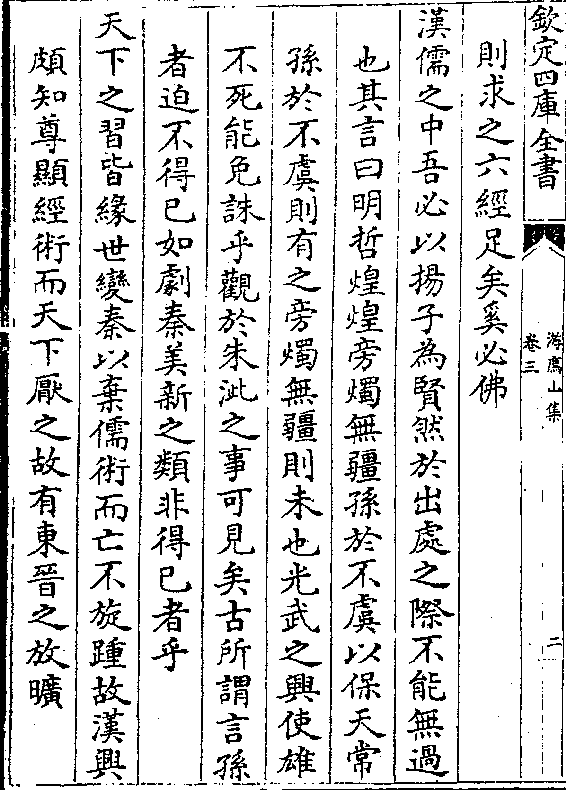 欽定四庫全書
游廌山集
卷三
二
則求之六經足矣奚必佛
漢儒之中吾必以揚子為賢然於出處之際不能無過
也其言曰明哲煌煌旁燭無疆孫於不虞以保天常
孫於不虞則有之旁燭無疆則未也光武之興使雄
不死能免誅乎觀於朱泚之事可見矣古所謂言孫
者迫不得已如劇秦美新之類非得已者乎
天下之習皆緣世變秦以棄儒術而亡不旋踵故漢興
頗知尊顯經術而天下厭之故有東晉之放曠